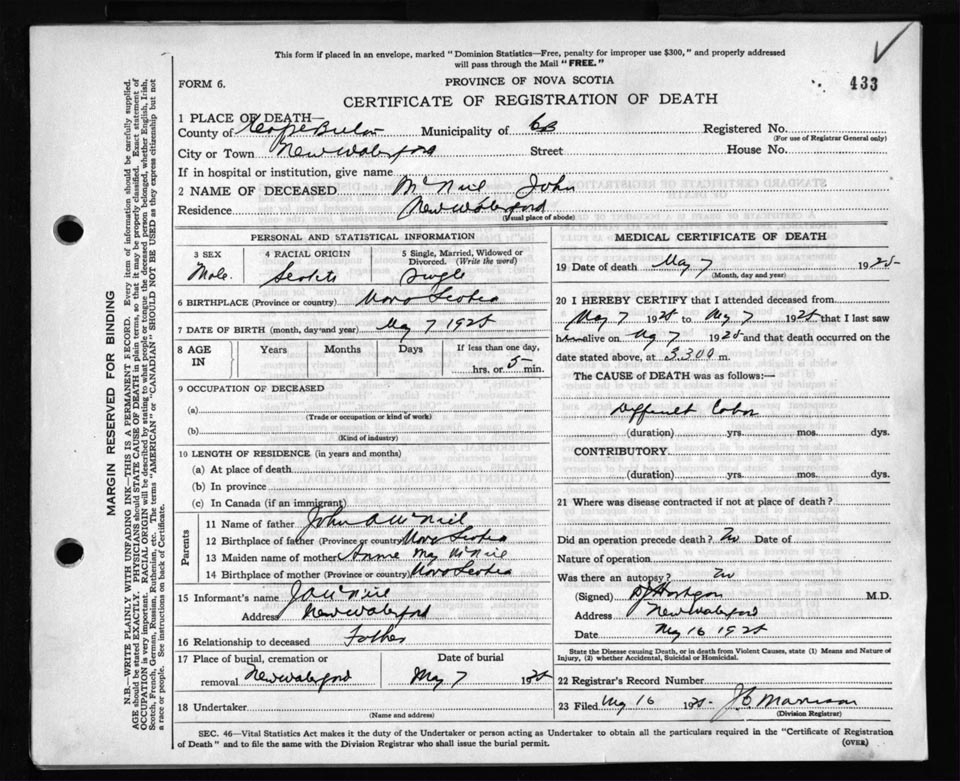 This form if placed in an envelope, marked "Dominion Statistics—Free, penalty for improper use $300," and properly addressed
will pass through the Mail "FREE."
FORM 6.
PROVINCE OF NOVA SCOTIA
433
CERTIFICATE OF REGISTRATION OF DEATH
1 PLACE OF DEATH—
County of Cape Breton Municipality of CB Registered No.
(For use of Registrar General only)
City or Town New Waterford Street House No.
If in hospital or institution, give name
2 NAME OF DECEASED McNeil John
Residence New Waterford
(Usual place of abode)
PERSONAL AND STATISTICAL INFORMATION
3 SEX 4 RACIAL ORIGIN 5 Single, Married, Widowed or Divorced. (Write the word)
Male. Scotch Single
6 BIRTHPLACE (Province or country) Nova Scotia
7 DATE OF BIRTH (month, day and year) May 7 1925
8 AGE IN Years Months Days If less than one day,
hrs. or 5 min.
9 OCCUPATION OF DECEASED
(a)
(Trade or occupation or kind of work)
(b)
(Kind of industry)
10 LENGTH OF RESIDENCE (in years and months)
(a) At place of death
(b) In province
(c) In Canada (if an immigrant)
Parents
11 Name of father John A McNeil
12 Birthplace of father (Province or country) Nova Scotia
13 Maiden name of mother Annie May McNeil
14 Birthplace of mother (Province or country) Nova Scotia
15 Informant's name J A McNeil
Address New Waterford
16 Relationship to deceased Father
17 Place of burial, cremation or Date of burial
removal New Waterford May 7 1925
18 Undertaker
(Name and address)
MEDICAL CERTIFICATE OF DEATH
19 Date of death May 7 1925
(Month, day and year)
20 I HEREBY CERTIFY that I attended deceased from
May 7 1925 to May 7 1925 that I last saw
h alive on May 7 1925 and that death occurred on the
date stated above, at m.
The CAUSE of DEATH was as follows:—
Difficult Labor
(duration) yrs. mos. dys.
CONTRIBUTORY
(duration) yrs. mos. dys.
21 Where was disease contracted if not at place of death?
Did an operation precede death? No Date of
Nature of operation
Was there an autopsy? No
(Signed) M.D.
Address New Waterford
Date May 16 1925
State the Disease causing Death, or in death from Violent Causes, state (1) Means and Nature of
Injury, (2) whether Accidental, Suicidal or Homicidal.
22 Registrar's Record Number
23 Filed May 16 1925
(Division Registrar)
SEC. 46—Vital Statistics Act makes it the duty of the Undertaker or person acting as Undertaker to obtain all the particulars required in the "Certificate of Registration
of Death" and to file the same with the Division Registrar who shall issue the burial permit.
(OVER)
MARGIN RESERVED FOR BINDING
N.B.—WRITE PLAINLY WITH UNFADING INK—THIS IS A PERMANENT RECORD. Every item of information should be carefully supplied.
AGE should be stated EXACTLY. PHYSICIANS should STATE CAUSE OF DEATH in plain terms, so that it may be properly classified. Exact statement of
OCCUPATION is very important. RACIAL ORIGIN will be described by stating to what people or tongue the deceased person belonged, whether English, Irish,
Scotch, French, German, Russian, Ruthenian, etc. The terms "AMERICAN" or "CANADIAN" SHOULD NOT BE USED as they express citizenship but not
a race or people. See instructions on back of Certificate.